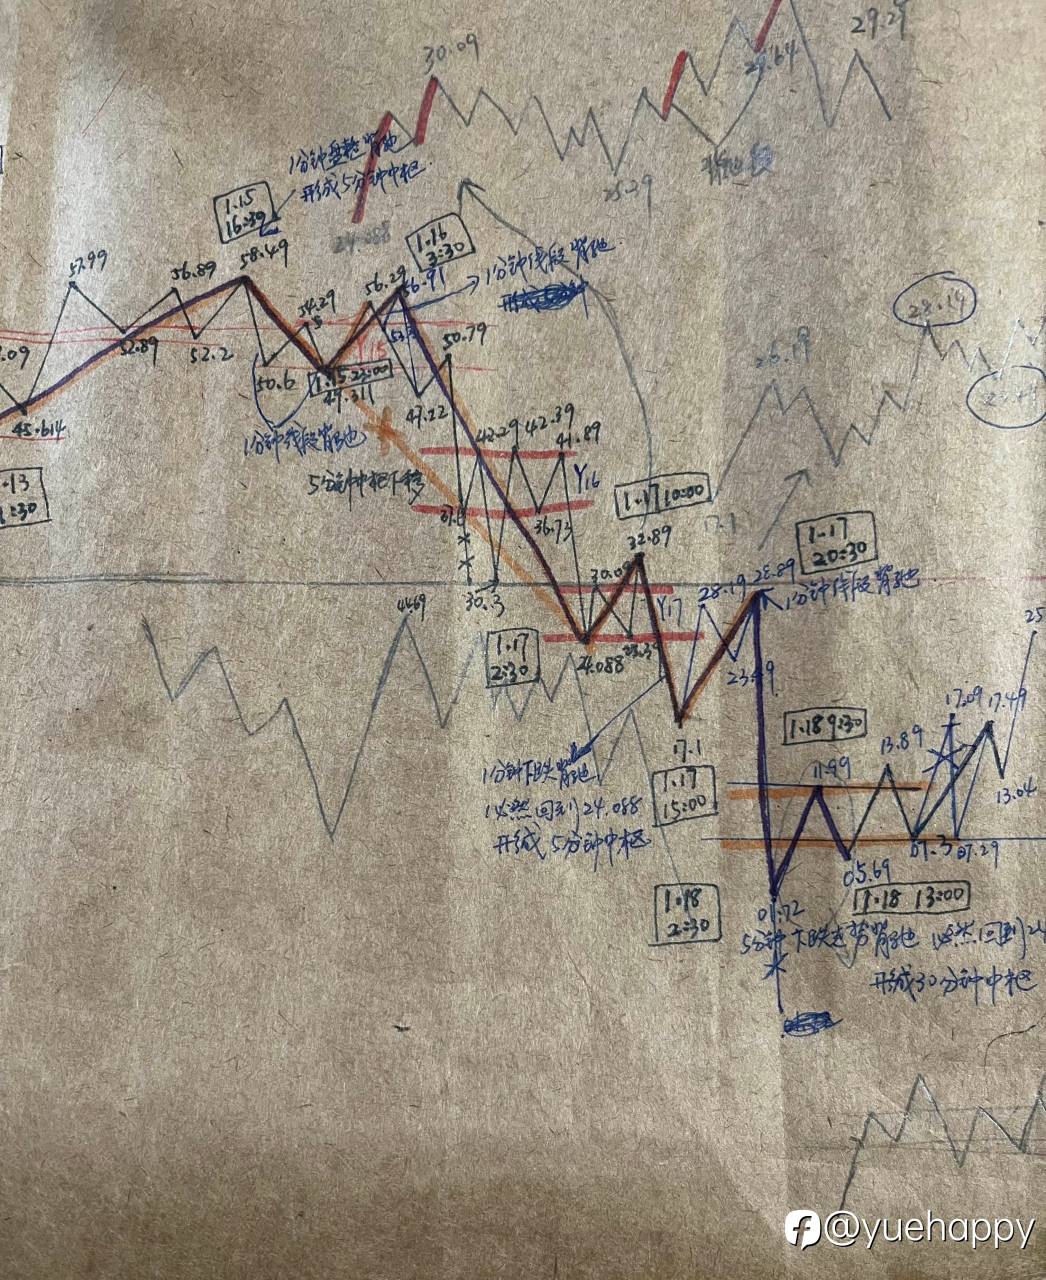 30.09
29.29
29.64
1分钟盘整背弛
形成5分钟中枢
25.29
24.088
1.15
16:30
58.49
1.16
3:30
1分钟线段背弛
57.99
56.89
54.29
56.29
56.91
28.19
26.19
50.79
52.89
52.2
Y15
50.6
1.15 22:00
49.311
47.22
45.614
1分钟线段背弛
42.29
42.39
41.89
5分钟中枢下移
Y16
36.73
1.17 10:00
17.1
32.89
1.17
20:30
30.09
28.19
28.89
1分钟线段背弛
30.3
Y17
44.69
1.17
2:30
24.088
25
17.09
17.49
1.18 9:30
17.1
13.89
11.99
1分钟下跌背弛
必然回到24.088
形成5分钟中枢
1.17
15:00
13.04
07.3
07.29
05.69
1.18
2:30
01.72
1.18 13:00
5分钟下跌走势背弛 必然回到24
形成30分钟中枢
@yuehappy